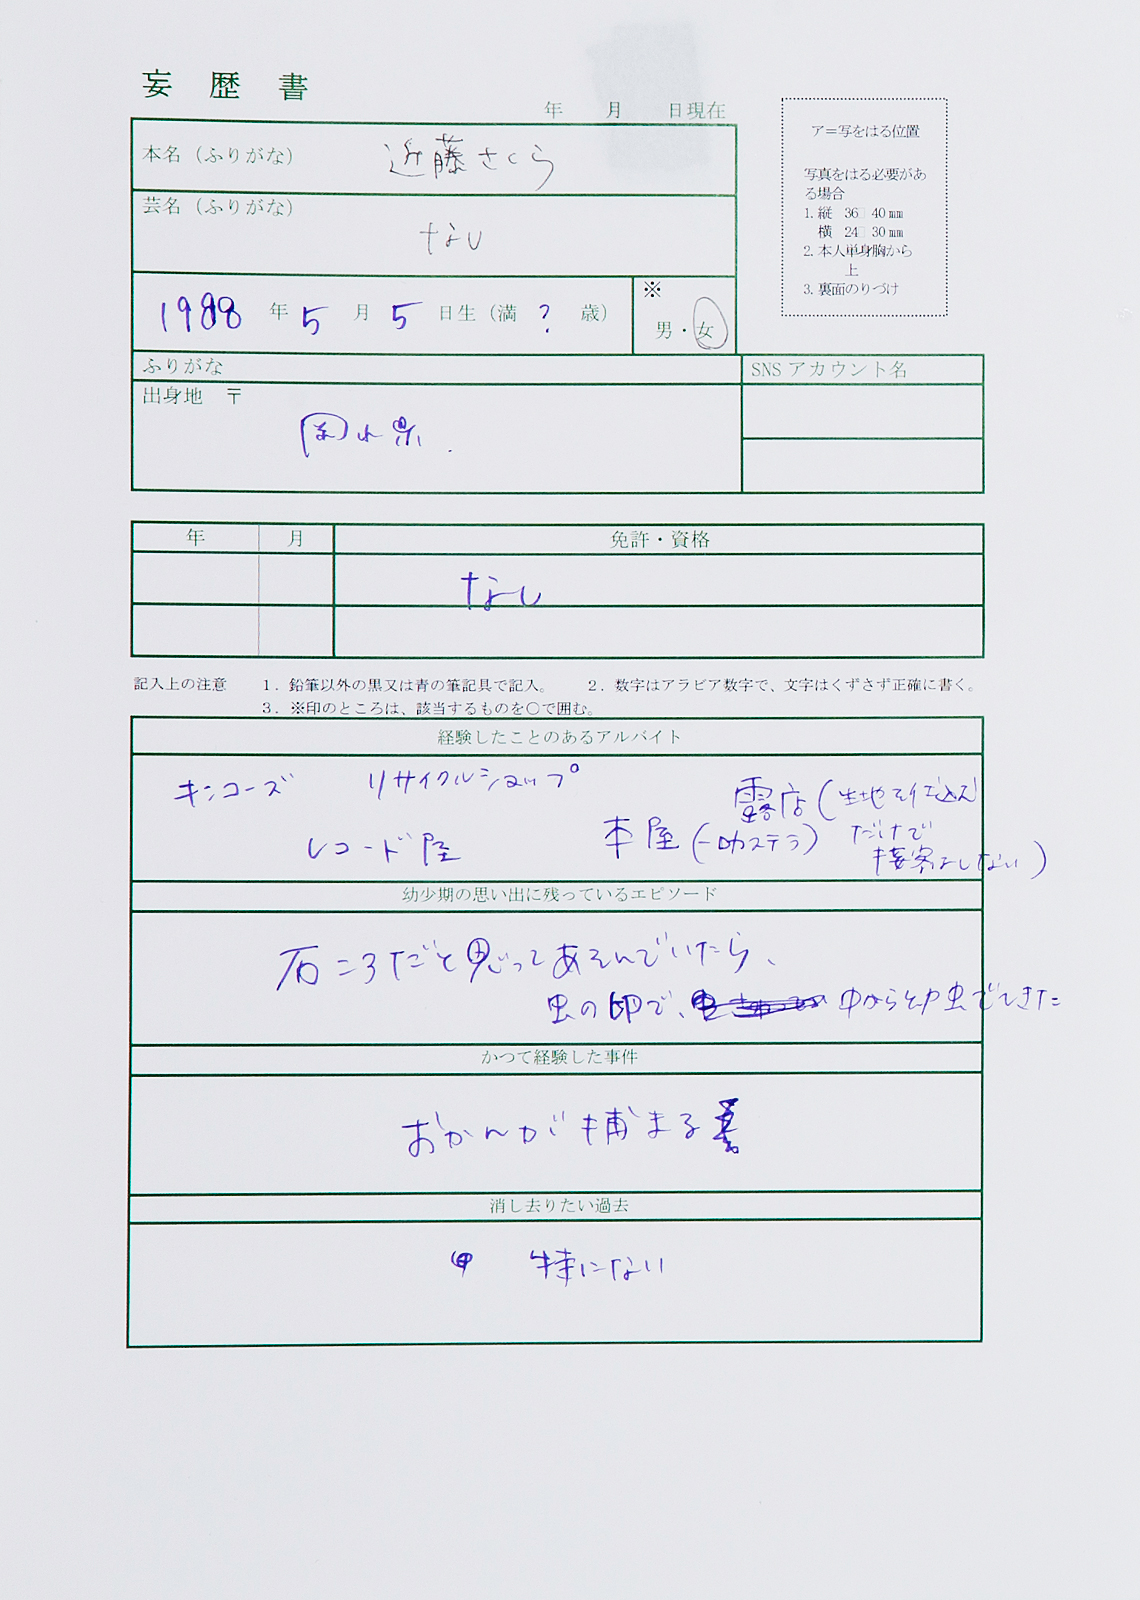 妄歴書
年 月 日現在
ア=写をはる位置
写真をはる必要があ
る場合
1. 縦 36 40mm
横 24 30mm
2. 本人単身胸から
上
3. 裏面のりづけ
本名(ふりがな) 近藤さくら
芸名(ふりがな)
なし
1988 年 5 月 5 日生(満 ? 歳)
※
男・女
ふりがな
SNS アカウント名
出身地 〒
岡山県.
年 月 免許・資格
なし
記入上の注意 1. 鉛筆以外の黒又は青の筆記具で記入。 2. 数字はアラビア数字で、文字はくずさず正確に書く。
3. ※印のところは、該当するものを○で囲む。
経験したことのあるアルバイト
キンコーズ リサイクルショップ 露店(生地を仕込む
レコード屋 本屋( ) だけで
接客はしない)
幼少期の思い出に残っているエピソード
石ころだと思ってあそんでいたら、
虫の卵で、 中から幼虫でてきた
かつて経験した事件
おかんが捕まる
消し去りたい過去
特にない